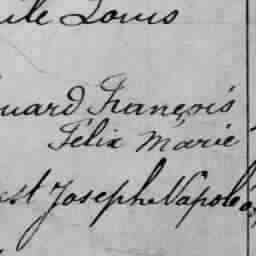 ile Louis
uard François
Félix Marie
st Joseph Napoléo